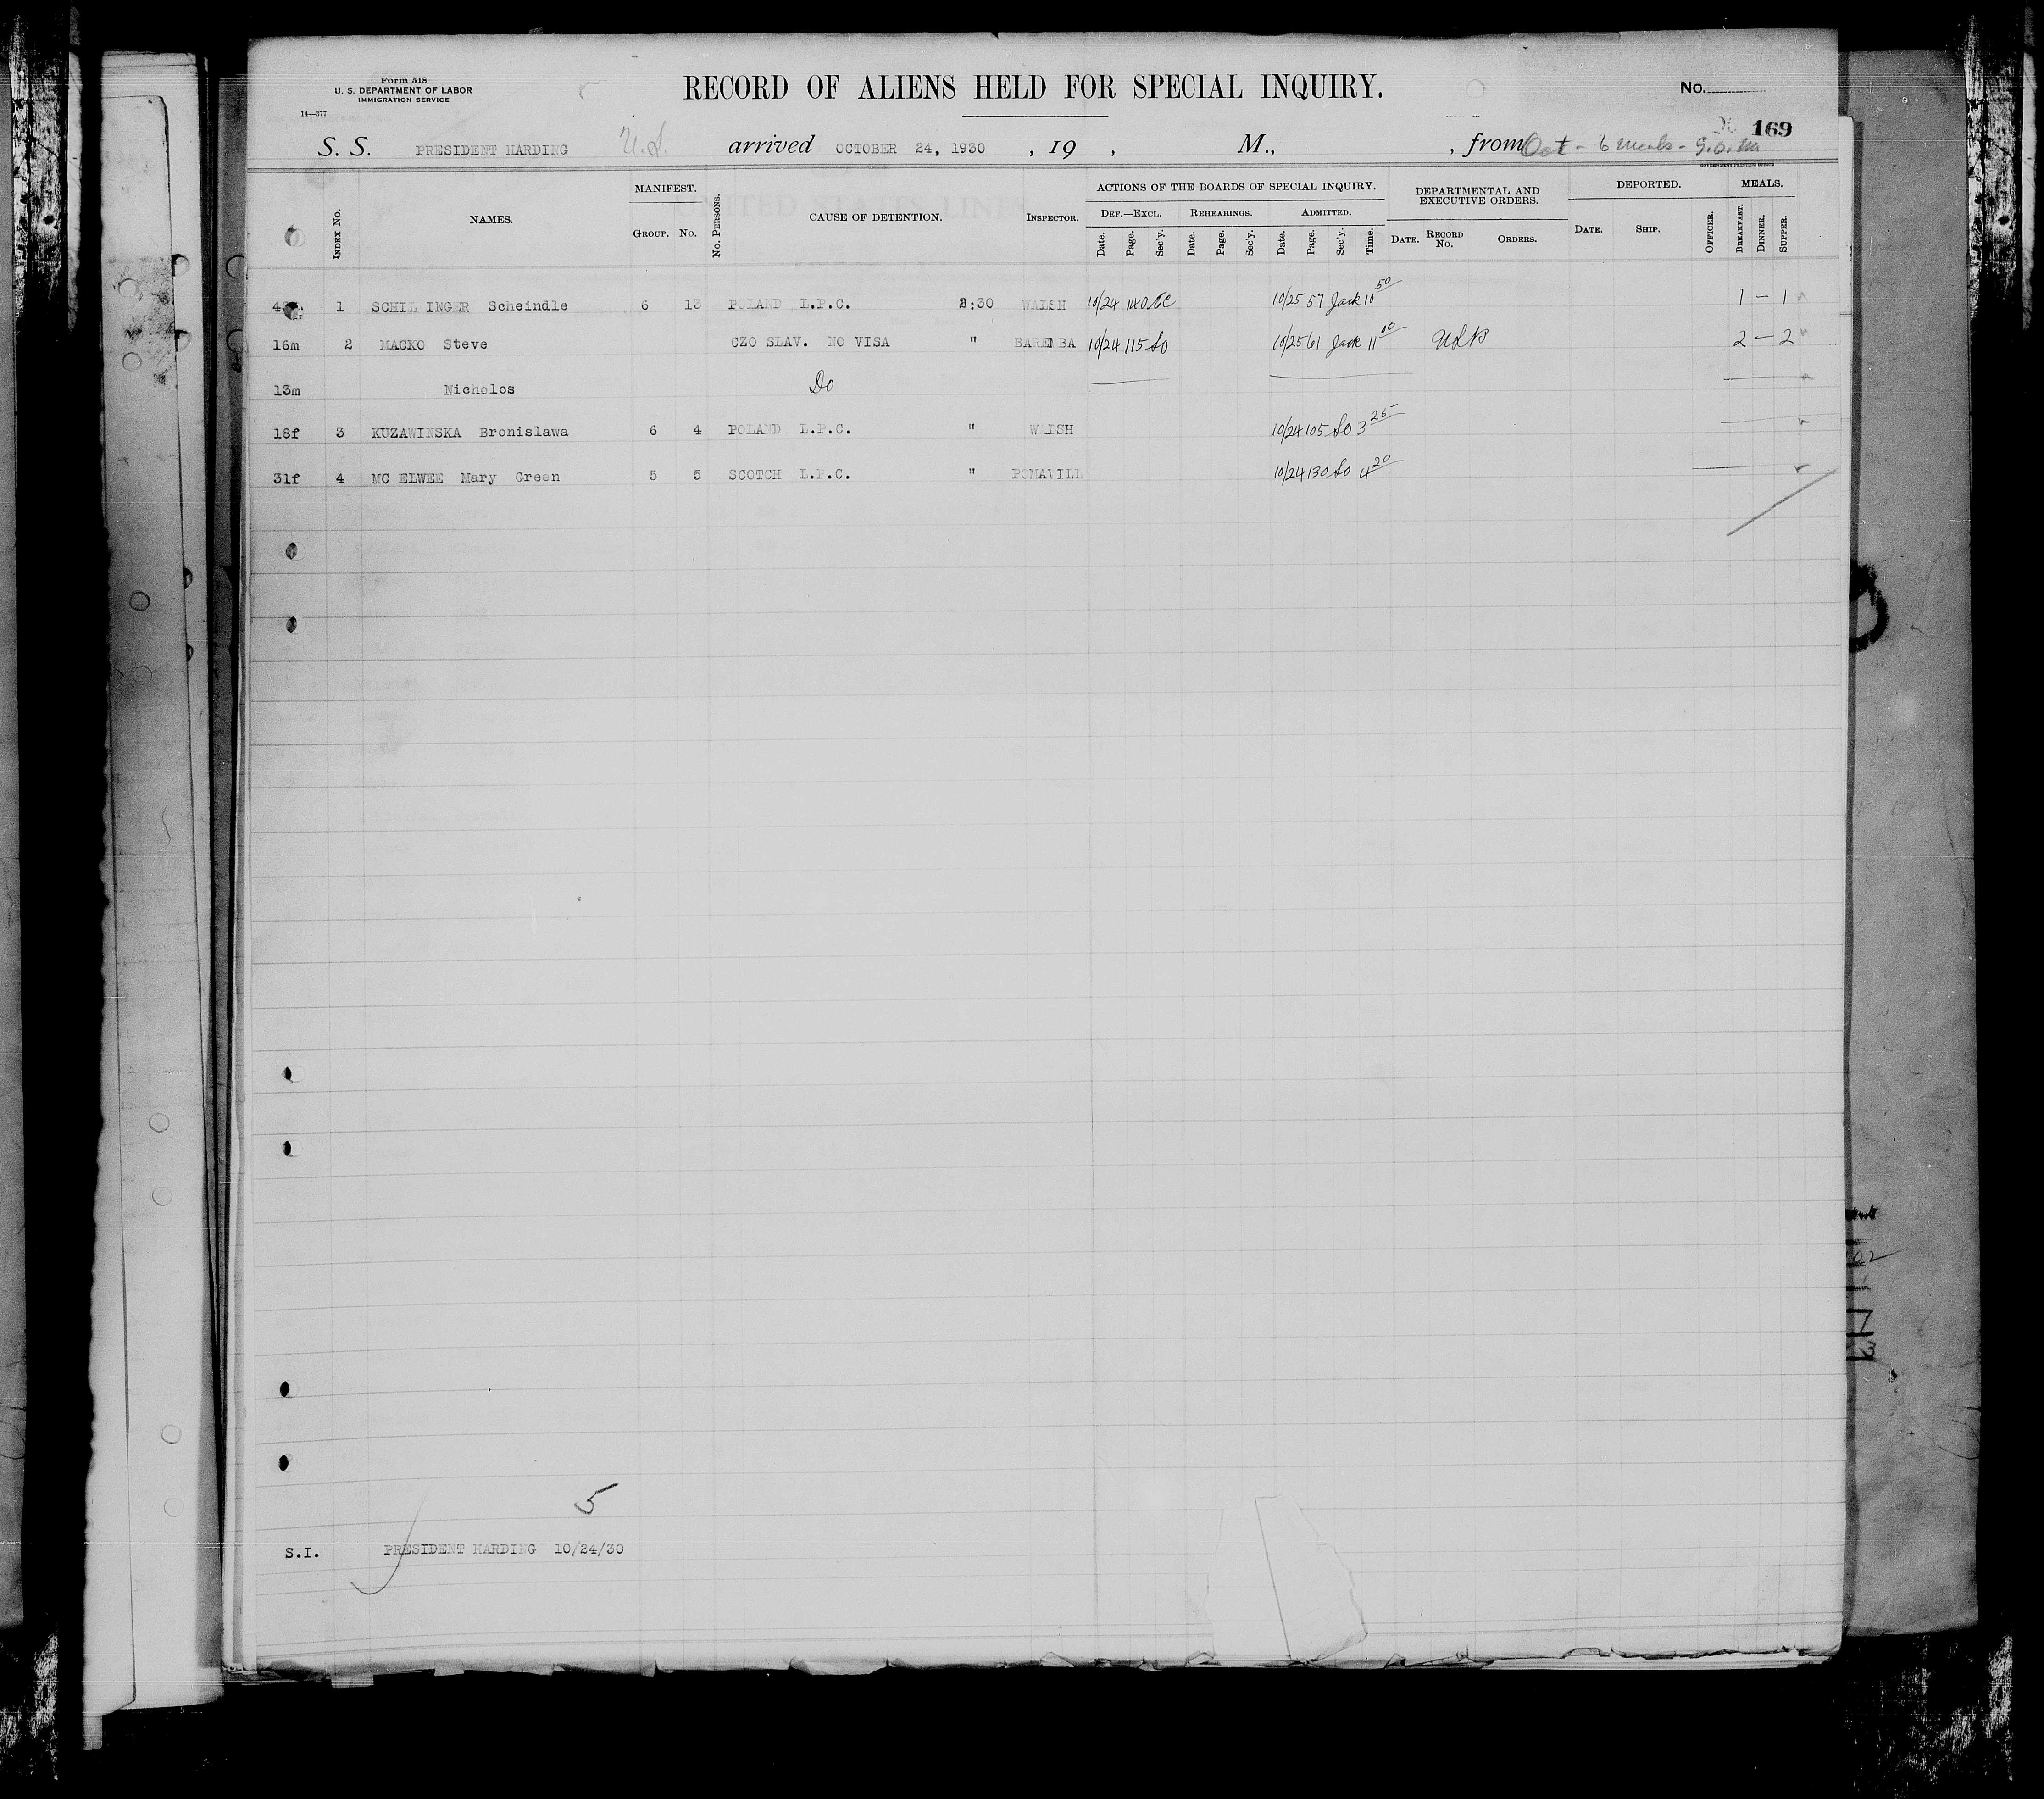 Form 518
U. S. DEPARTMENT OF LABOR
IMMIGRATION SERVICE
14—377
RECORD OF ALIENS HELD FOR SPECIAL INQUIRY.
No.
169
S. S. PRESIDENT HARDING U.S. arrived OCTOBER 24, 1930 , 19 , M., , from Oct - 6 meals -
GOVERNMENT PRINTING OFFICE
INDEX No. NAMES. MANIFEST. GROUP. No. No. PERSONS. CAUSE OF DETENTION. INSPECTOR. ACTIONS OF THE BOARDS OF SPECIAL INQUIRY. DEF.—EXCL. Date. Page. Sec'y. REHEARINGS. Date. Page. Sec'y. ADMITTED. Date. Page. Sec'y. Time. DEPARTMENTAL AND EXECUTIVE ORDERS. DATE. RECORD No. ORDERS. DEPORTED. DATE. SHIP. OFFICER. MEALS. BREAKFAST. DINNER. SUPPER.
1 SCHIL INGER Scheindle 6 13 POLAND L.P.C. 2:30 WALSH 10/24 140 10/25 57 Jack 10 50 1 — 1
16m 2 MACKO Steve CZO SLAV. NO VISA " 10/24 115 So 10/25 61 Jack 11 00 2 — 2
13m Nicholos Do
18f 3 KUZAWINSKA Bronislawa 6 4 POLAND L.P.C. " WALSH 10/24 105 So 3 25
31f 4 MC ELWEE Mary Green 5 5 SCOTCH L.P.C. " POMAVILL 10/24 130 So 4 20
5
S.I. PRESIDENT HARDING 10/24/30